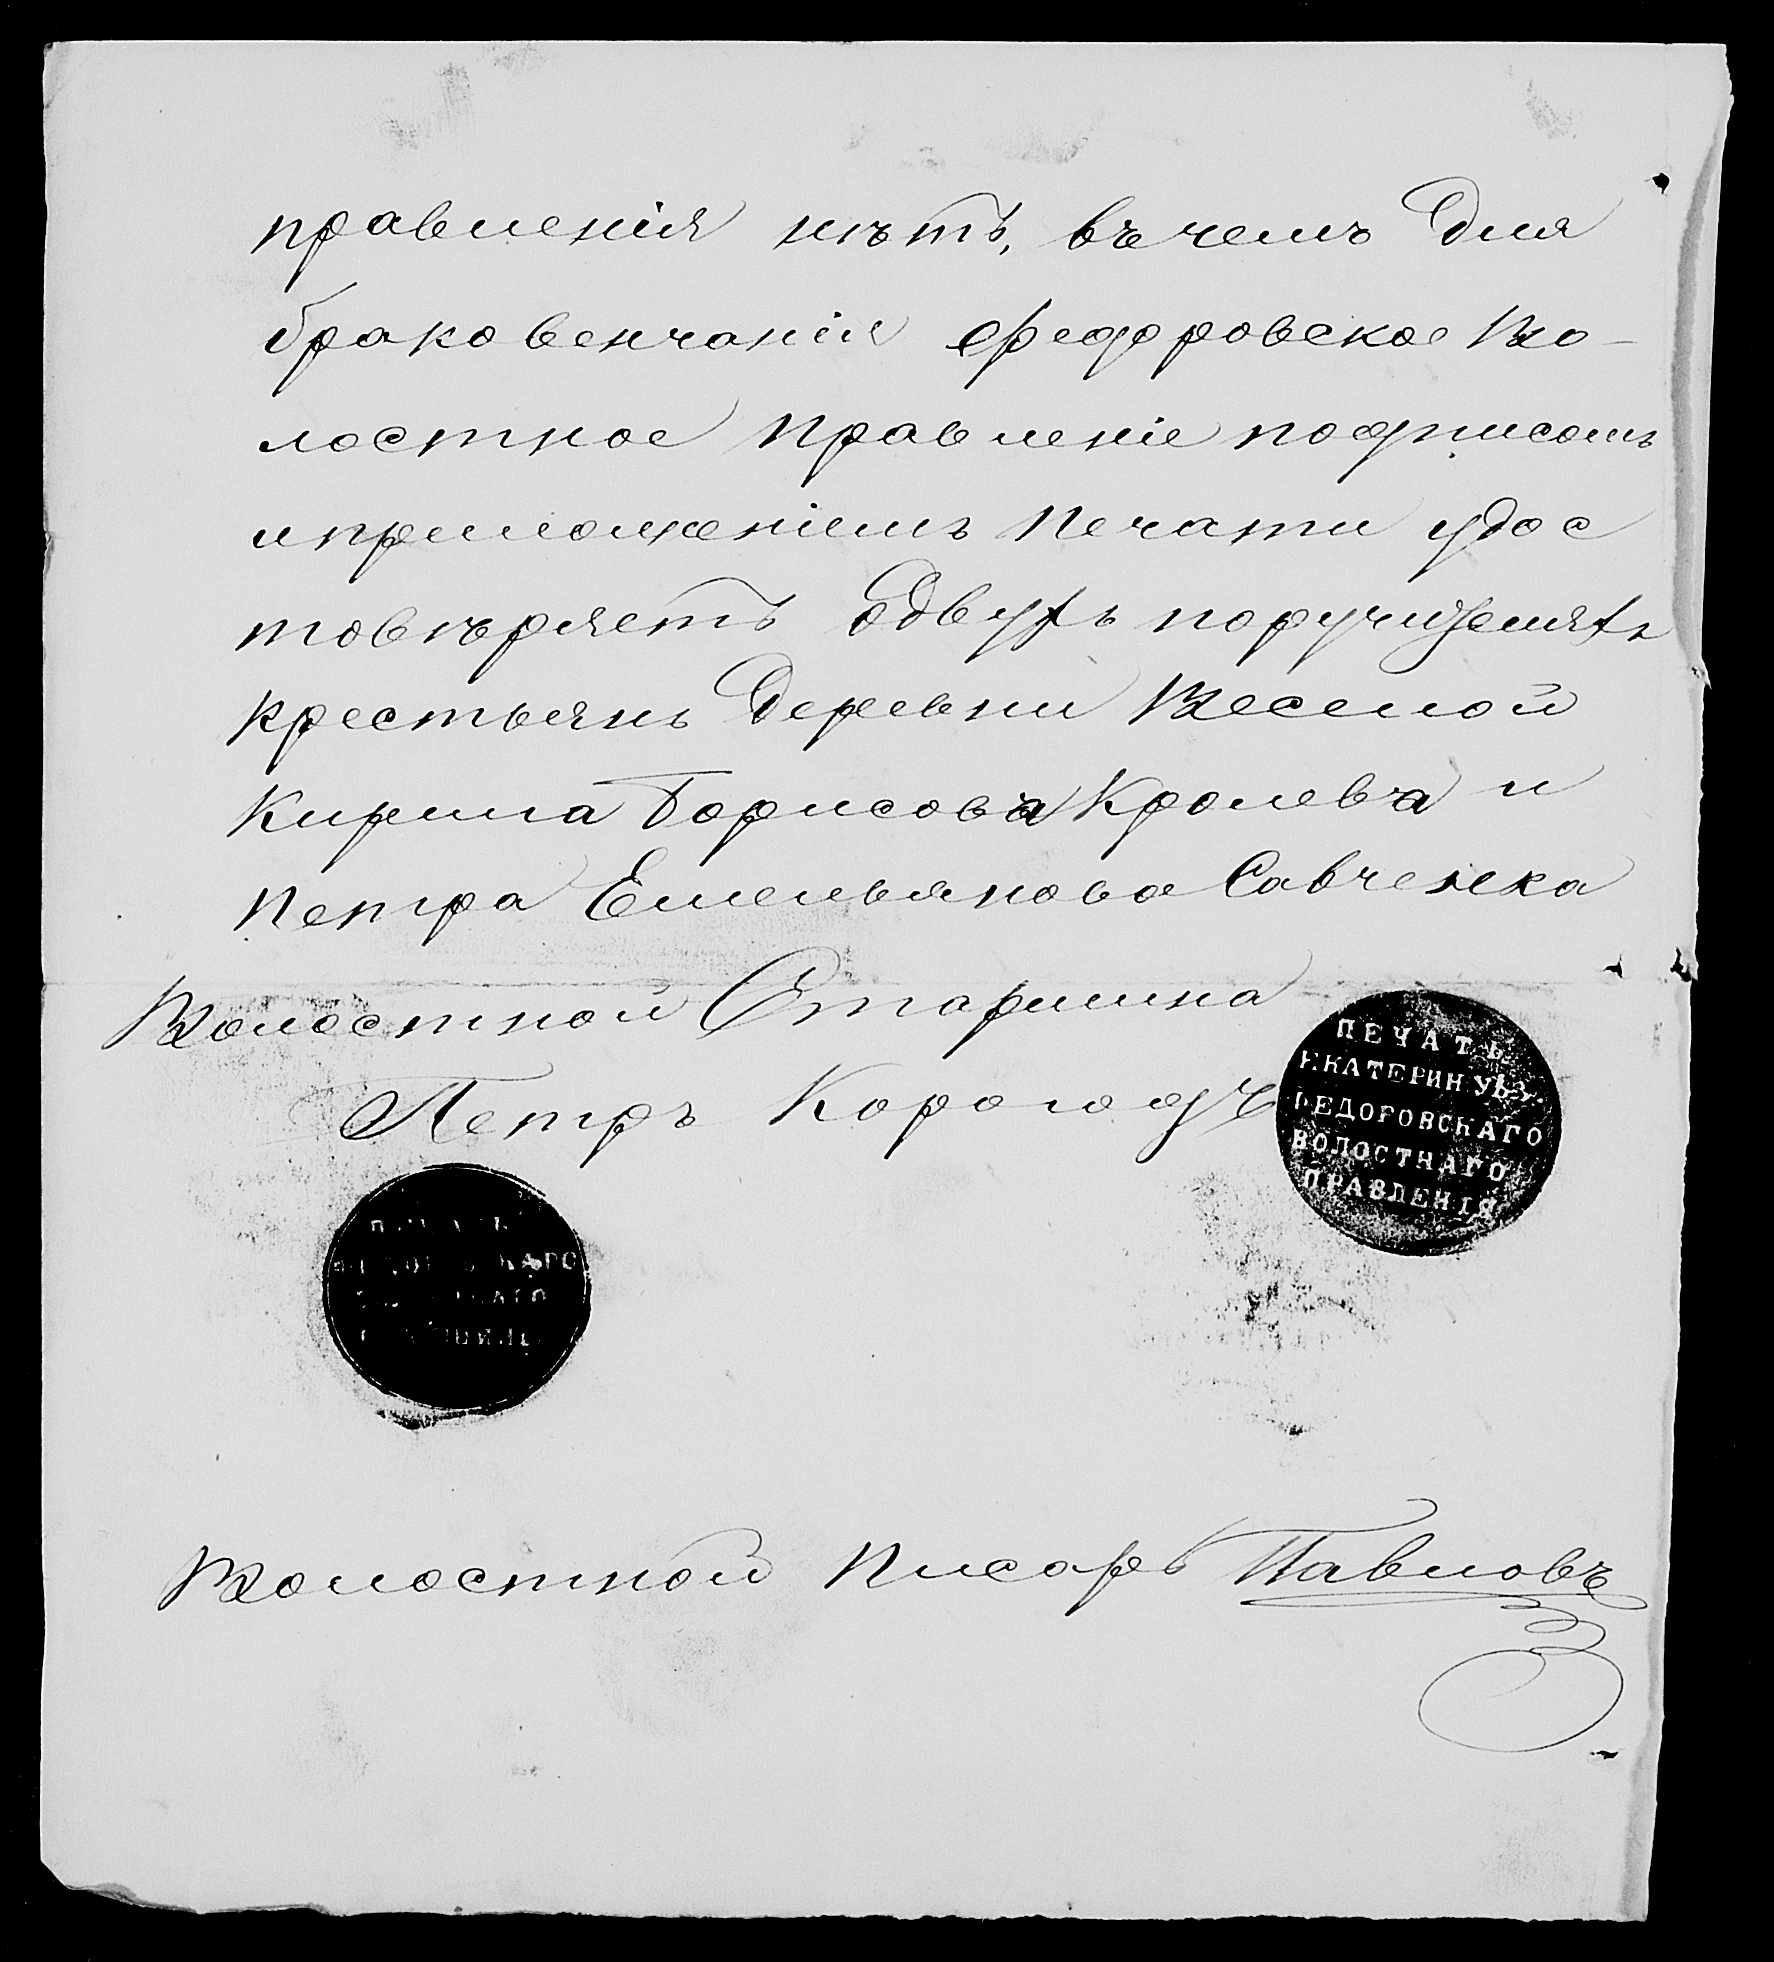 правленія нѣтъ, въ чемъ для
браковенчанія Федоровское Во-
лостное Правленіе подписомъ
и приложеніемъ Печати удос
товѣряетъ о двухъ поручителяхъ
крестьянъ деревни Веселой
Кирила Борисова Кролева и
Петра Емельянова Савченка
Волостной Старшина
Петръ Корогодъ
ПЕЧАТЬ
ЕКАТЕРИН. УѢЗ.
ФЕДОРОВСКАГО
ВОЛОСТНАГО
ПРАВЛЕНІЯ
Волостной Писарь Павловъ